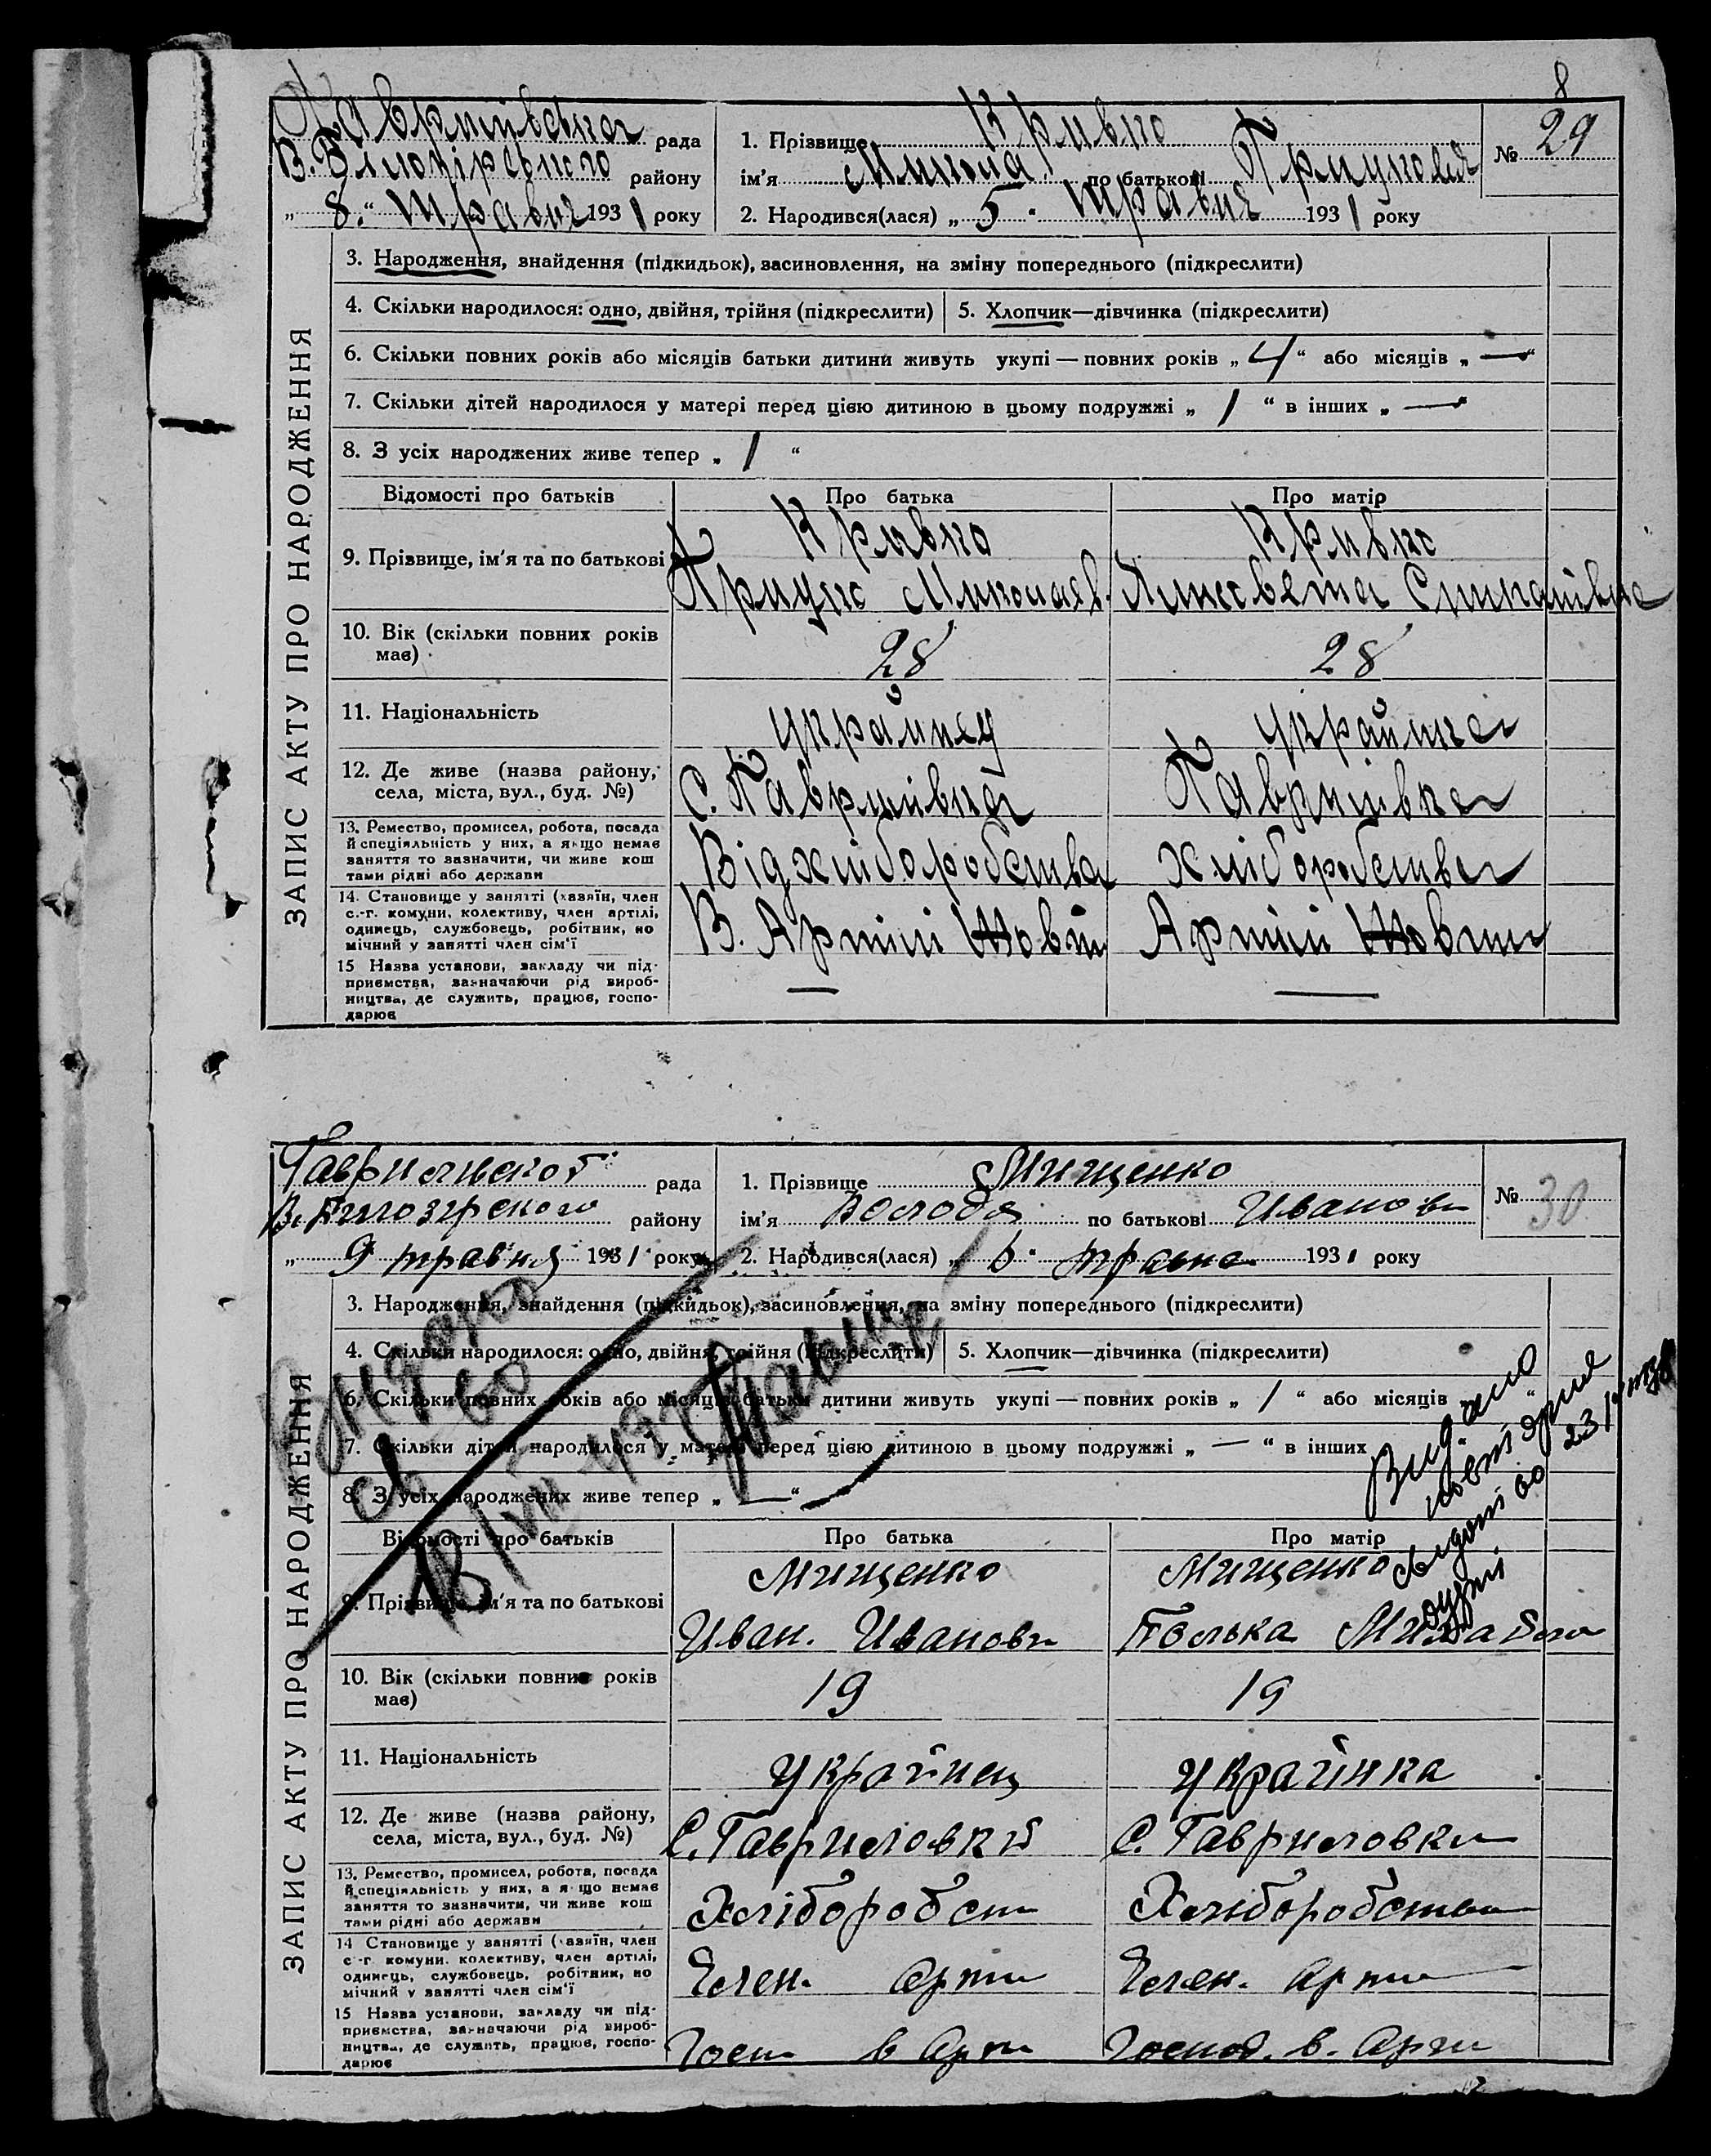 8
рада
В. района
1. Прізвище Кривко
№ 29
району
ім'я Микола по батькові
„ 8. “ травня 1931 року
2. Народився(лася) „ 5 “ травня 1931 року
ЗАПИС АКТУ ПРО НАРОДЖЕННЯ
3. Народження, знайдення (підкидьок), засиновлення, на зміну попереднього (підкреслити)
4. Скільки народилося: одно, двійня, трійня (підкреслити)
5. Хлопчик—дівчинка (підкреслити)
6. Скільки повних років або місяців батьки дитини живуть укупі — повних років „ 4 “ або місяців „ — “
7. Скільки дітей народилося у матері перед цією дитиною в цьому подружжі „ 1 “ в інших „ — “
8. З усіх народжених живе тепер „ 1 “
Відомості про батьків
Про батька
Про матір
9. Прізвище, ім'я та по батькові
Кривко
Кривко
10. Вік (скільки повних років
має)
28
28
11. Національність
українец
українка
12. Де живе (назва району,
села, міста, вул., буд. №)
с. Гаврилівка
Гаврилівка
13. Ремество, промисел, робота, посада
й спеціяльність у них, а якщо немає
заняття то зазначити, чи живе кош
тами рідні або держави
Від хліборобства
хліборобства
14. Становище у занятті (хазяїн, член
с.-г. комуни, колективу, член артілі,
одинець, службовець, робітник, по
мічний у занятті член сім'ї
В. Артілі Жовт
Артілі Жовтн
15 Назва установи, закладу чи під-
приємства, зазначаючи рід вироб-
ництва, де служить, працює, госпо-
дарює
—
—
рада
1. Прізвище Мищенко
№ 30
району
ім'я Володя по батькові Иванови
„ 9 травня 1931 року
2. Народився(лася) „ 6 “ травня 1931 року
ЗАПИС АКТУ ПРО НАРОДЖЕННЯ
3. Народження, знайдення (підкидьок), засиновлення, на зміну попереднього (підкреслити)
4. Скільки народилося: одно, двійня, трійня (підкреслити)
5. Хлопчик—дівчинка (підкреслити)
6. Скільки повних років або місяців батьки дитини живуть укупі — повних років „ 1 “ або місяців
7. Скільки дітей народилося у матері перед цією дитиною в цьому подружжі „ — “ в інших
8. З усіх народжених живе тепер „ — “
Видано
Видано
Відомості про батьків
Про батька
Про матір
9. Прізвище, ім'я та по батькові
Мищенко
Иван. Иванови
Мищенко
10. Вік (скільки повних років
має)
19
19
11. Національність
Українец
Українка
12. Де живе (назва району,
села, міста, вул., буд. №)
С. Гавриловки
С. Гавриловки
13. Ремество, промисел, робота, посада
й спеціяльність у них, а якщо немає
заняття то зазначити, чи живе кош
тами рідні або держави
Хлібороб
Хліборобства
14 Становище у занятті (хазяїн, член
с.-г. комуни, колективу, член артілі,
одинець, службовець, робітник, по
мічний у занятті член сім'ї
Член. арти
Член. арти
15 Назва установи, закладу чи під-
приємства, зазначаючи рід вироб-
ництва, де служить, працює, госпо-
дарює
Госп в Арти
Господ. в. Арти